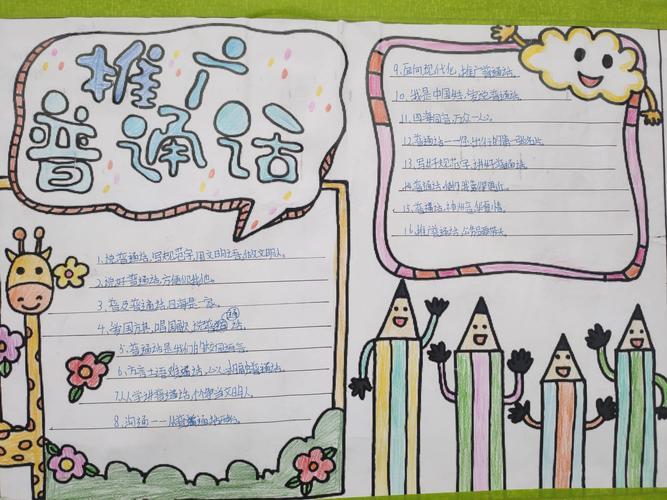 推广
普通话
1.说普通话,写规范字,用文明语,做文明人。
2.说好普通话,方便你我他。
3.普及普通话,四海是一家。
4.爱国旗,唱国歌,说普通话。
5.普通话是我们的校园语言。
6.方言土语难
7.人人学讲普通话,个个争当文明人。
8.沟通——从普通话开始。
9.面向现代化,推广普通话。
10.我是中国娃,爱说普通话。
11.四海同音,万众一心。
12.普通话——你、我的第一张名片。
13.写好规范字,讲好普通话。
14.普通话,
15.普通话,
16.推广普通话,